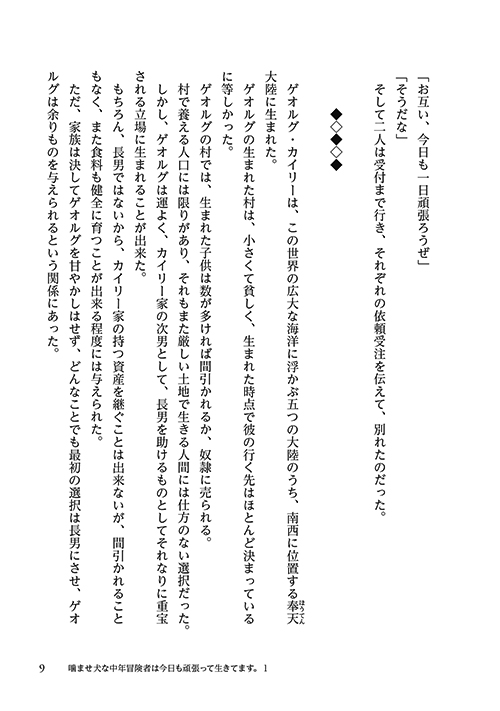 「お互い、今日も一日頑張ろうぜ」
「そうだな」
そして二人は受付まで行き、それぞれの依頼受注を伝えて、別れたのだった。
◆◇◆◇◆
ゲオルグ・カイリーは、この世界の広大な海洋に浮かぶ五つの大陸のうち、南西に位置する奉天ほうてん
大陸に生まれた。
ゲオルグの生まれた村は、小さくて貧しく、生まれた時点で彼の行く先はほとんど決まっている
に等しかった。
ゲオルグの村では、生まれた子供は数が多ければ間引かれるか、奴隷に売られる。
村で養える人口には限りがあり、それもまた厳しい土地で生きる人間には仕方のない選択だった。
しかし、ゲオルグは運よく、カイリー家の次男として、長男を助けるものとしてそれなりに重宝
される立場に生まれることが出来た。
もちろん、長男ではないから、カイリー家の持つ資産を継ぐことは出来ないが、間引かれること
もなく、また食料も健全に育つことが出来る程度には与えられた。
ただ、家族は決してゲオルグを甘やかしはせず、どんなことでも最初の選択は長男にさせ、ゲオ
ルグは余りものを与えられるという関係にあった。
9 噛ませ犬な中年冒険者は今日も頑張って生きてます。1